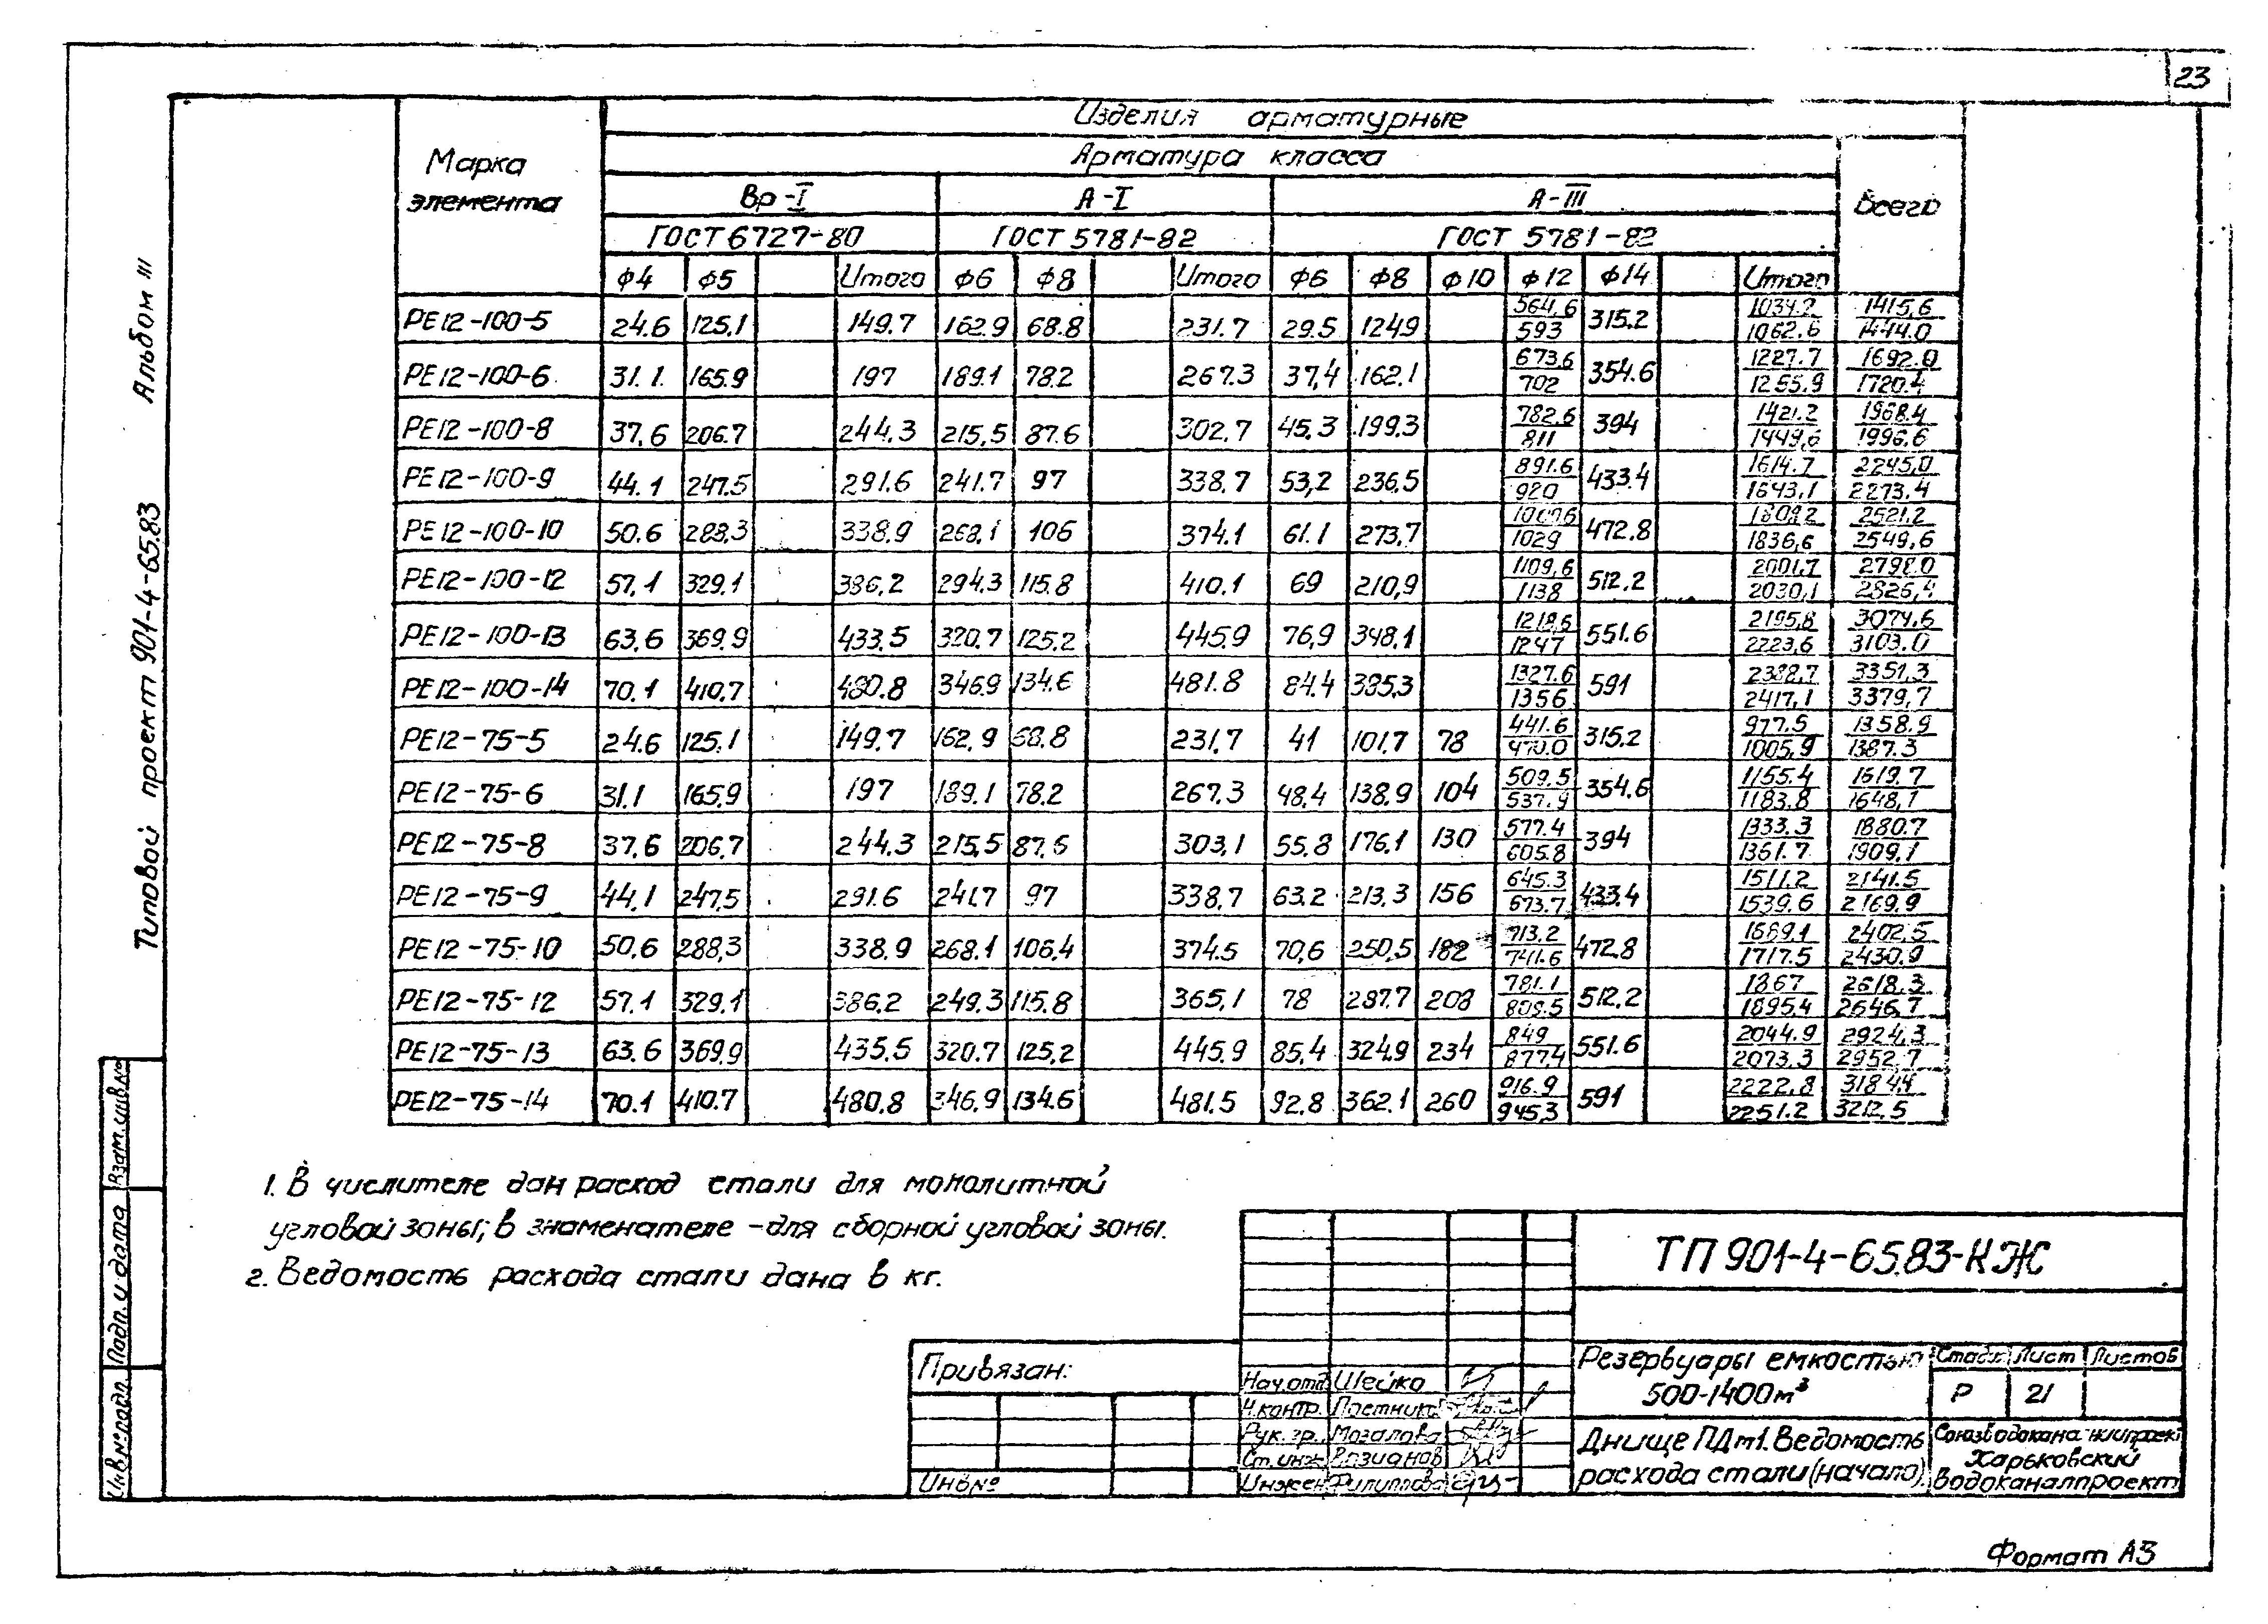 23
Изделия арматурные
Марка элемента
Арматура класса
Всего
Вр-I А-I А-III
ГОСТ 6727-80 ГОСТ 5781-82 ГОСТ 5781-82
ф4 ф5 Итого ф6 ф8 Итого ф6 ф8 ф10 ф12 ф14 Итого
РЕ12-100-5 24.6 125.1 149.7 162.9 68.8 231.7 29.5 124.9 564,6/593 315.2 1034.2/1062.6 1415,6/1444.0
РЕ12-100-6 31.1 165.9 197 189.1 78.2 267.3 37,4 162.1 673,6/702 354.6 1227.7/1255.9 1692.0/1720.4
РЕ12-100-8 37,6 206.7 244.3 215,5 87.6 302.7 45.3 199.3 782,6/811 394 1421.2/1449,6 1968.4/1996.6
РЕ12-100-9 44.1 247.5 291.6 241.7 97 338.7 53,2 236.5 891.6/920 433.4 1614.7/1643,1 2245,0/2273.4
РЕ12-100-10 50.6 288.3 338.9 268.1 106 374.1 61.1 273,7 1029 472.8 1808,2/1836,6 2521.2/2549,6
РЕ12-100-12 57,1 329.1 386,2 294.3 115.8 410.1 69 210,9 1109,6/1138 512.2 2001.7/2030,1 2798.0/2826,4
РЕ12-100-13 63,6 369.9 433,5 320.7 125.2 445.9 76,9 348,1 1218,6/1247 551.6 2195,8/2223,6 3074.6/3103.0
РЕ12-100-14 70.1 410,7 480.8 346.9 134.6 481.8 84.4 385,3 1327.6/1356 591 2388,7/2417,1 3351,3/3379,7
РЕ12-75-5 24.6 125,1 149,7 162,9 68.8 231,7 41 101,7 78 441.6/470.0 315.2 977.5/1005,9 1358.9/1387.3
РЕ12-75-6 31.1 165,9 197 189.1 78.2 267.3 48,4 138,9 104 509,5/537,9 354.6 1155.4/1183,8 1619.7/1648,1
РЕ12-75-8 37,6 206,7 244.3 215,5 87,6 303,1 55,8 176.1 130 577.4/605.8 394 1333.3/1361.7 1880.7/1909,1
РЕ12-75-9 44,1 247,5 291.6 241.7 97 338,7 63.2 213,3 156 645.3/673.7 433.4 1511,2/1539,6 2141.5/2169,9
РЕ12-75-10 50,6 288,3 338.9 268.1 106,4 374.5 70,6 250,5 182 713.2/741.6 472.8 1689,1/1717.5 2402,5/2430.9
РЕ12-75-12 57.1 329.1 386.2 249.3 115.8 365,1 78 287.7 208 781.1/809.5 512.2 1867/1895,4 2618,3/2646,7
РЕ12-75-13 63.6 369,9 435.5 320.7 125,2 445.9 85,4 324,9 234 849/877,4 551.6 2044.9/2073.3 2924,3/2952,7
РЕ12-75-14 70.1 410.7 480,8 346,9 134.6 481.5 92.8 362.1 260 916.9/945,3 591 2222,8/2251.2 3184.4/3212,5
1. В числителе дан расход стали для монолитной
угловой зоны; в знаменателе - для сборной угловой зоны.
2. Ведомость расхода стали дана в кг.
Типовой проект 901-4-65.83 Альбом III
Инв.№подл. Подп. и дата Взам.инв.№
ТП 901-4-65.83-КЖ
Привязан:
Инв№
Нач.отд. Шейко
Н.контр.
Рук.гр. Мозалова
Ст.инж.
Инжен. Филиппова
Резервуары емкостью
500-1400м³
Стад. Лист Листов
Р 21
Днище ПДм1. Ведомость
расхода стали (начало).
Союзводоканалниипроект
Харьковский
Водоканалпроект
Формат А3